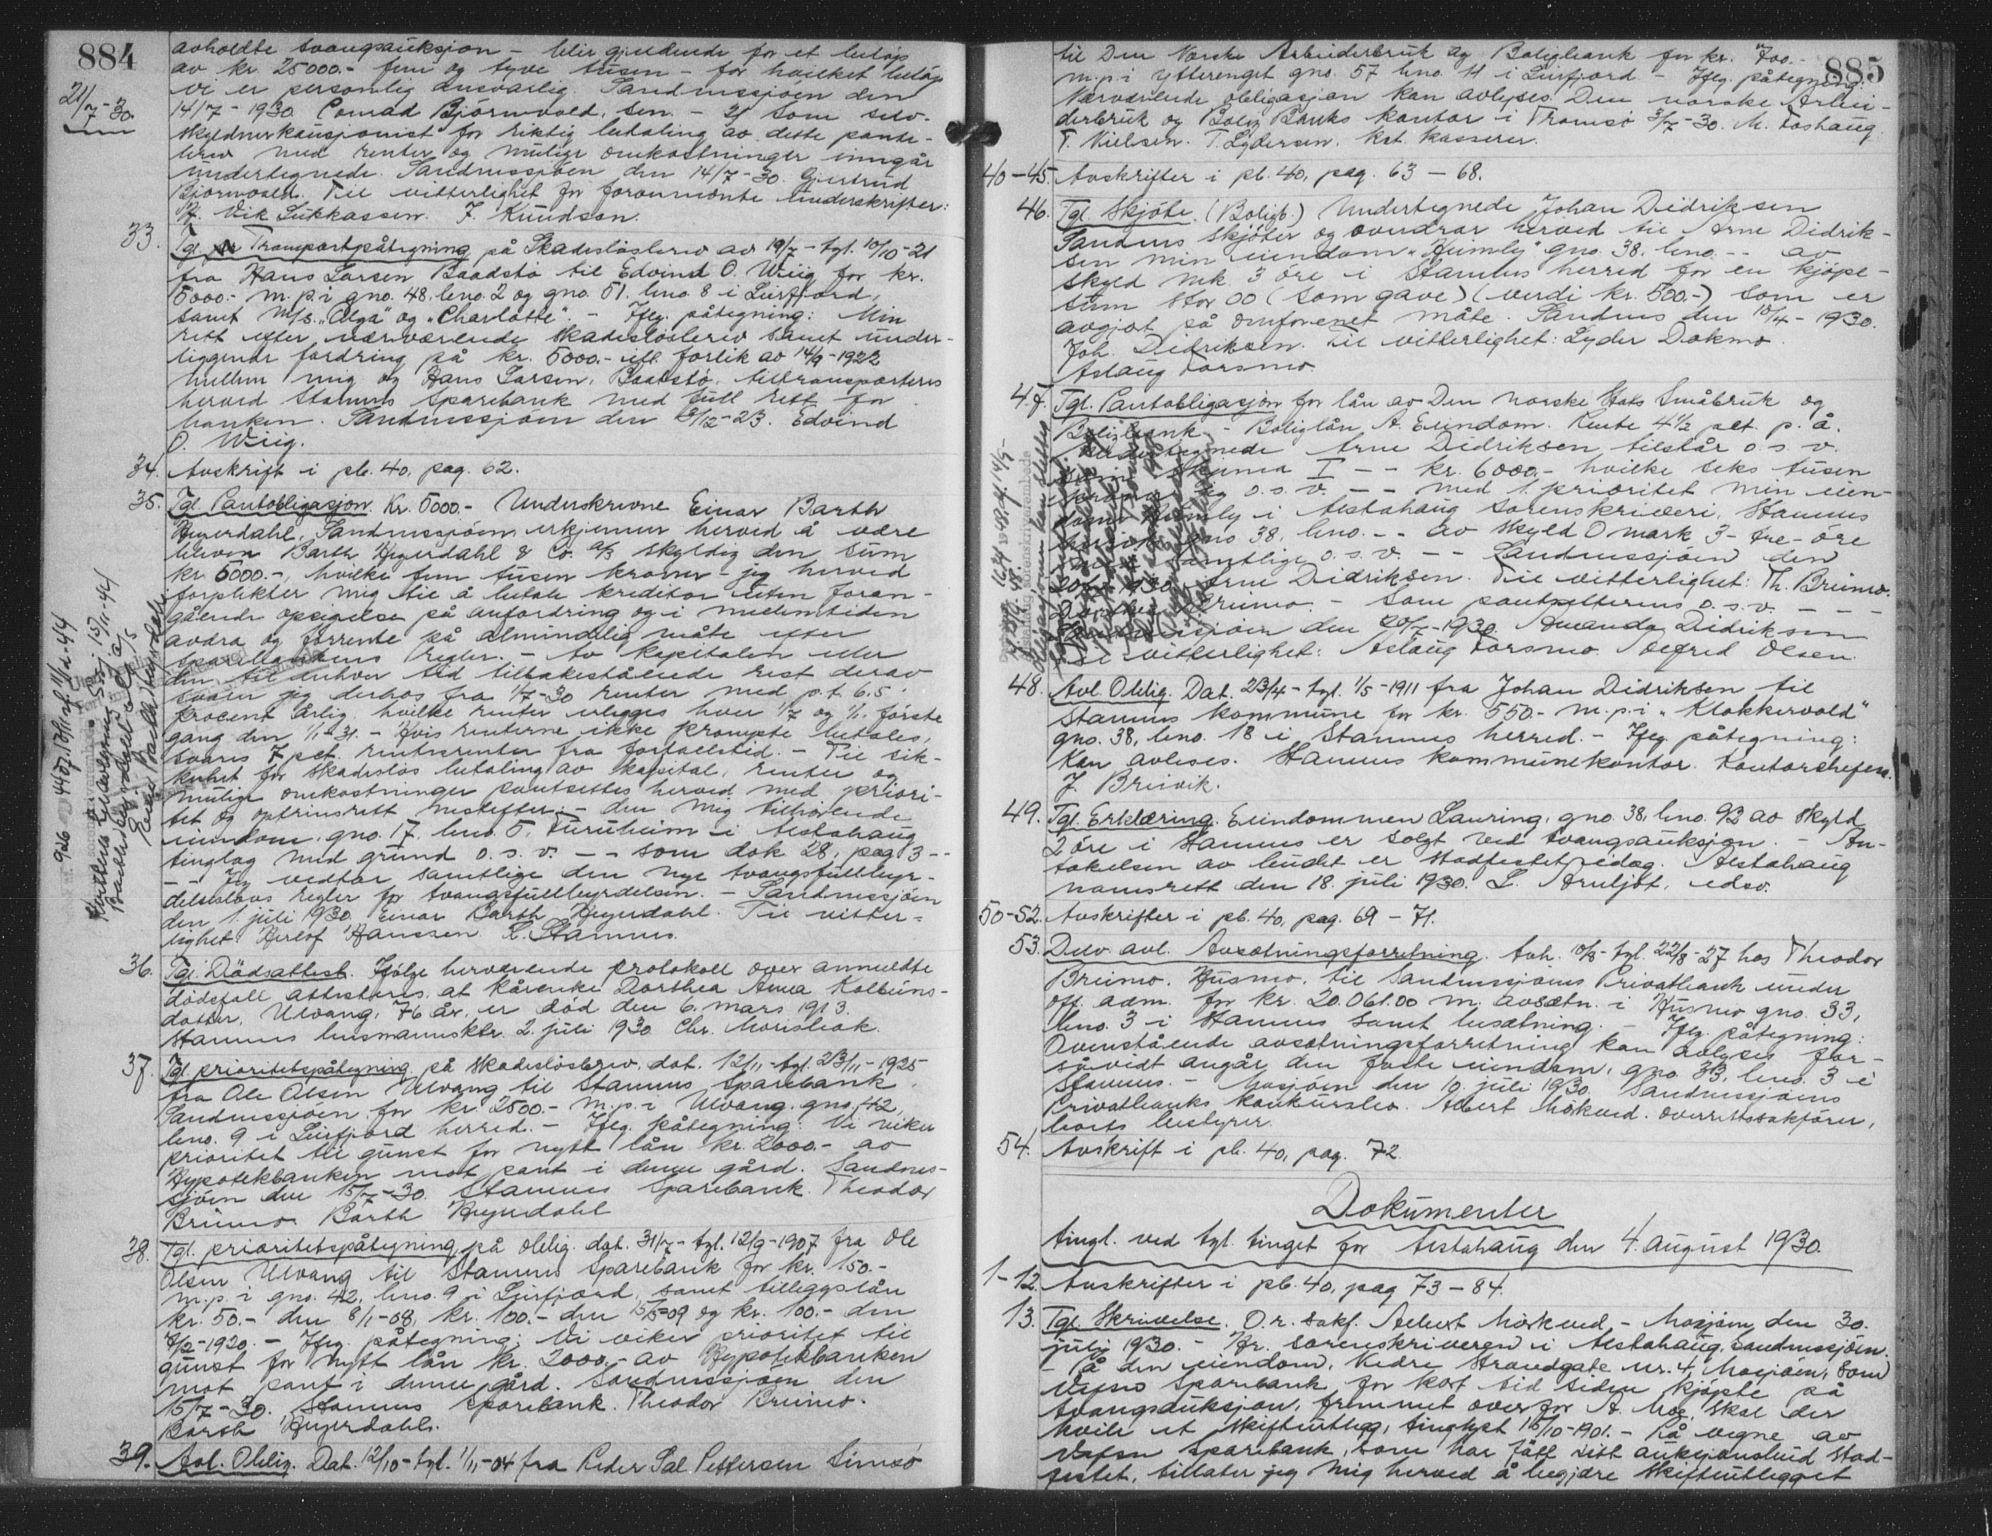 884
21/7-30.
avholdte tvangsauksjon - blir gjeldende for et beløp
av kr. 25000.- fem og tyve tusen - for hvilket beløp
vi er personlig ansvarlig. Sandnessjøen den
14/7 - 1930. Conrad Bjørnvold, sen. - Og som selv-
skyldnerkausjonist for riktig betaling av dette pante-
brev med renter og mulige omkostninger inngår
undertegnede. Sandnessjøen, den 14/7-30. Gjertrud
Bjornvold. Til vitterlighet for forannevnte underskrifter:
Vik Lukkassen. J. Knudsen.
33. Tgl. Transportpåtegning på Skadesløsbrev av 19/7 - tgl. 10/10-21
fra Hans Larsen Baadstø til Edvind O. Wiig for kr.
5000.- m.p.i gno. 48. bno. 2 og gno. 51. bno. 8 i Leirfjord,
samt M/S. "Olga" og "Charlotte". - Iflg. påtegning: Min
rett efter nærværende skadesløsbrev samt under-
liggende fordring på kr. 5000.- etl. forlik av 14/9-1922
mellem mig og Hans Larsen, Baadstø, tiltransporteres
herved Stamnes Sparebank med full rett for
banken. Sandnessjøen den 8/12-23. Edvind
O. Wiig.
34. Avskrift i pb. 40, pag. 62.
35. Tgl. Pantobligasjon. Kr. 5000.- Underskrevne Einar Barth
Heyerdahl, Sandnessjøen erkjenner herved å være
bleven Barth Heyerdahl & Co. A/S skyldig den sum
kr. 5000.-, hvilke fem tusen kroner - jeg herved
forplikter mig til å betale kreditor uten foran-
gående opsigelse på anfordring og i mellemtiden
avdra og forrente på almindelig måte efter
sparebankens regler. - Av kapitalen eller
den til enhver tid tilbakestående rest derav
svarer jeg derhos fra 1/7-30 renter med p.t. 6,5
procent årlig, hvilke renter erlegges hver 1/7 og 1/1, første
gang den 1/1-31. - Hvis renterne ikke prompte betales,
svares 7 pct. rentesrenter fra forfallstid. - Til sik-
kerhet for skadesløs betaling av kapital, renter og
mulige omkostninger pantsettes herved med priori-
tet og optrinsrett nestefter: - den mig tilhørende
eiendom, gno. 17, bno. 5, Furuheim i Alstahaug
tinglag med grund o.s.v. - - som dok 28, pag 3 --
- - Jeg vedtar samtlige den nye tvangsfullbyr-
delseslovs regler for tvangsfullbyrdelsen. - Sandnessjøen
den 1. juli 1930. Einar Barth Heyerdahl. Til vitter-
lighet: Herlof Hanssen. L. Stamnes.
36. Tgl. Dødsattest. Ifølge herværende protokoll over anmeldte
dødsfall attesteres, at kårenke Dorthea Anna Kolbeins-
datter, Ulvang, 76 år, er død den 6. mars 1913.
Stamnes lensmannsktr. 2. juli 1930. Chr. Morisbak.
37. Tgl. prioritetspåtegning på Skadesløsbrev, dat. 12/11-tgl. 23/11-1925
fra Ole Olsen Ulvang til Stamnes Sparebank,
Sandnessjøen for kr. 2500.- m.p.i Ulvang. gno. 42,
bno. 9 i Leirfjord herred. - Iflg. påtegning: Vi viker
prioritet til gunst for nytt lån kr. 2000.- av
Hypotekbanken mot pant i denne gård. Sandnes-
sjøen den 15/7-30. Stamnes Sparebank. Theodor
Breimo. Barth Heyerdahl
38. Tgl. prioritetspåtegning på oblig. dat. 31/7 - tgl. 12/9-1907 fra Ole
Olsen Ulvang til Stamnes Sparebank for kr. 150.-
m.p.i gno. 42, bno. 9 i Leirfjord, samt tilleggslån
kr. 50.- den 8/1-08, kr. 100.- den 15/5-09 og kr. 100.- den
4/2-1920. - Iflg. påtegning: Vi viker prioritet til
gunst for nytt lån kr. 2000.- av Hypotekbanken
mot pant i denne gård. Sandnessjøen den
15/7-30. Stamnes Sparebank. Theodor Breimo.
Barth Heyerdahl.
39. Avl. Oblig. Dat. 12/10-tgl. 1/11-04 fra Peder Sal Pettersen Simsø
885
til Den Norske Arbeiderbruk og Boligbank for kr. 700.-
m.p.i Ytterenget gno. 57 bno. 11 i Leirfjord - Iflg. påtegning:
Nærværende obligasjon kan avlyses. Den norske Arbei-
derbruk og Bolig Banks kontor i Tromsø 3/7-30. M. Foshaug.
F. Nielsen. T. Lydersen. kst. kasserer.
40-45. Avskrifter i pb. 40, pag. 63 - 68.
46. Tgl. Skjøte. (Boligb.) Undertegnede Johan Didriksen
Sandnes skjøter og overdrar herved til Arne Didrik-
sen min eiendom "Heimly" gno. 38, bno. -- av
skyld mk 3 øre i Stamnes herred for en kjøpe-
sum stor 00 (som gave) (verdi kr. 500.-) som er
avgjort på omforenet måte. Sandnes den 10/4 - 1930.
Joh. Didriksen. Til vitterlighet: Lyder Dokmo.
Aslaug Forsmo.
47. Tgl. Pantobligasjon for lån av Den norske Stats Småbruk og
Boligbank - Boliglån A. Eiendom. Rente 4½ pct. p.å.
Undertegnede Arne Didriksen tilstår o.s.v.
I - - kr. 6000.- hvilke seks tusen
kroner og o.s.v. - - med 1. prioritet min eien-
dom Heimly i Alstahaug sorenskriveri, Stamnes
gno 38, bno. - - av skyld 0 mark 3 - tre - øre
samtlige o.s.v. - - Sandnessjøen den
1930. Arne Didriksen. Til vitterlighet: Th. Breimo.
Breimo. - Som pantsetterens o.s.v. - - -
Sandnessjøen den 20/7-1930. Amanda Didriksen
Til vitterlighet: Aslaug Forsmo. Alfred Olsen.
48. Avl. Oblig. Dat. 23/4 - tgl. 1/5-1911 fra Johan Didriksen til
Stamnes kommune for kr. 550.- m.p.i "Klokkervold"
gno. 38, bno. 18 i Stamnes herred. - Iflg. påtegning:
Kan avleses. Stamnes kommunekontor. Kontorchefen.
J. Breivik.
49. Tgl. Erklæring. Eiendommen Lauring, gno. 38, bno. 93 av skyld
2 øre i Stamnes er solgt ved tvangsauksjon. - An-
takelsen av budet er stadfestet idag. Alstahaug
namsrett den 18. juli 1930. L. Arneljot, edsv.
50-52. Avskrifter i pb. 40, pag. 69 - 71.
53. Delv. avl. Avsetningsforretning. Avh. 10/8 - tgl. 22/8-27 hos Theodor
Breimo, Husmo, til Sandnessjøens Privatbank under
off. adm. for kr. 20.061.00 m. avsetn. i Husmo gno. 33,
bno. 3 i Stamnes samt besætning. - Iflg. påtegning:
Ovenstående avsetningsforretning kan avlyses for-
såvidt angår den faste eiendom, gno. 33, bno. 3 i
Stamnes. - Mosjøen den 10. juli 1930. Sandnessjøens
Privatbanks konkursbo. Albert Mørkved. overrettssakfører,
boets bestyrer.
54. Avskrift i pb. 40, pag. 72.
Dokumenter
tingl. ved tgl. tinget for Alstahaug den 4. august 1930.
1-12. Avskrifter i pb. 40, pag 73 - 84.
13. Tgl. Skrivelse. O.r. sakf. Albert Mørkved - Mosjøen, den 30.
juli 1930. - Hr. sorenskriveren i Alstahaug, Sandnessjøen.
- På den eiendom, Nedre Strandgate nr. 4, Mosjøen, som
Vefsn Sparebank for kort tid siden kjøpte på
tvangsauksjon, fremmet overfor A. Moe, skal der
hvile et skifteutlegg, tinglyst 15/10-1901. - På vegne av
Vefsn Sparebank, som har fått sitt auksjonsbud stad-
festet, tillater jeg mig herved å begjære skifteutlegget